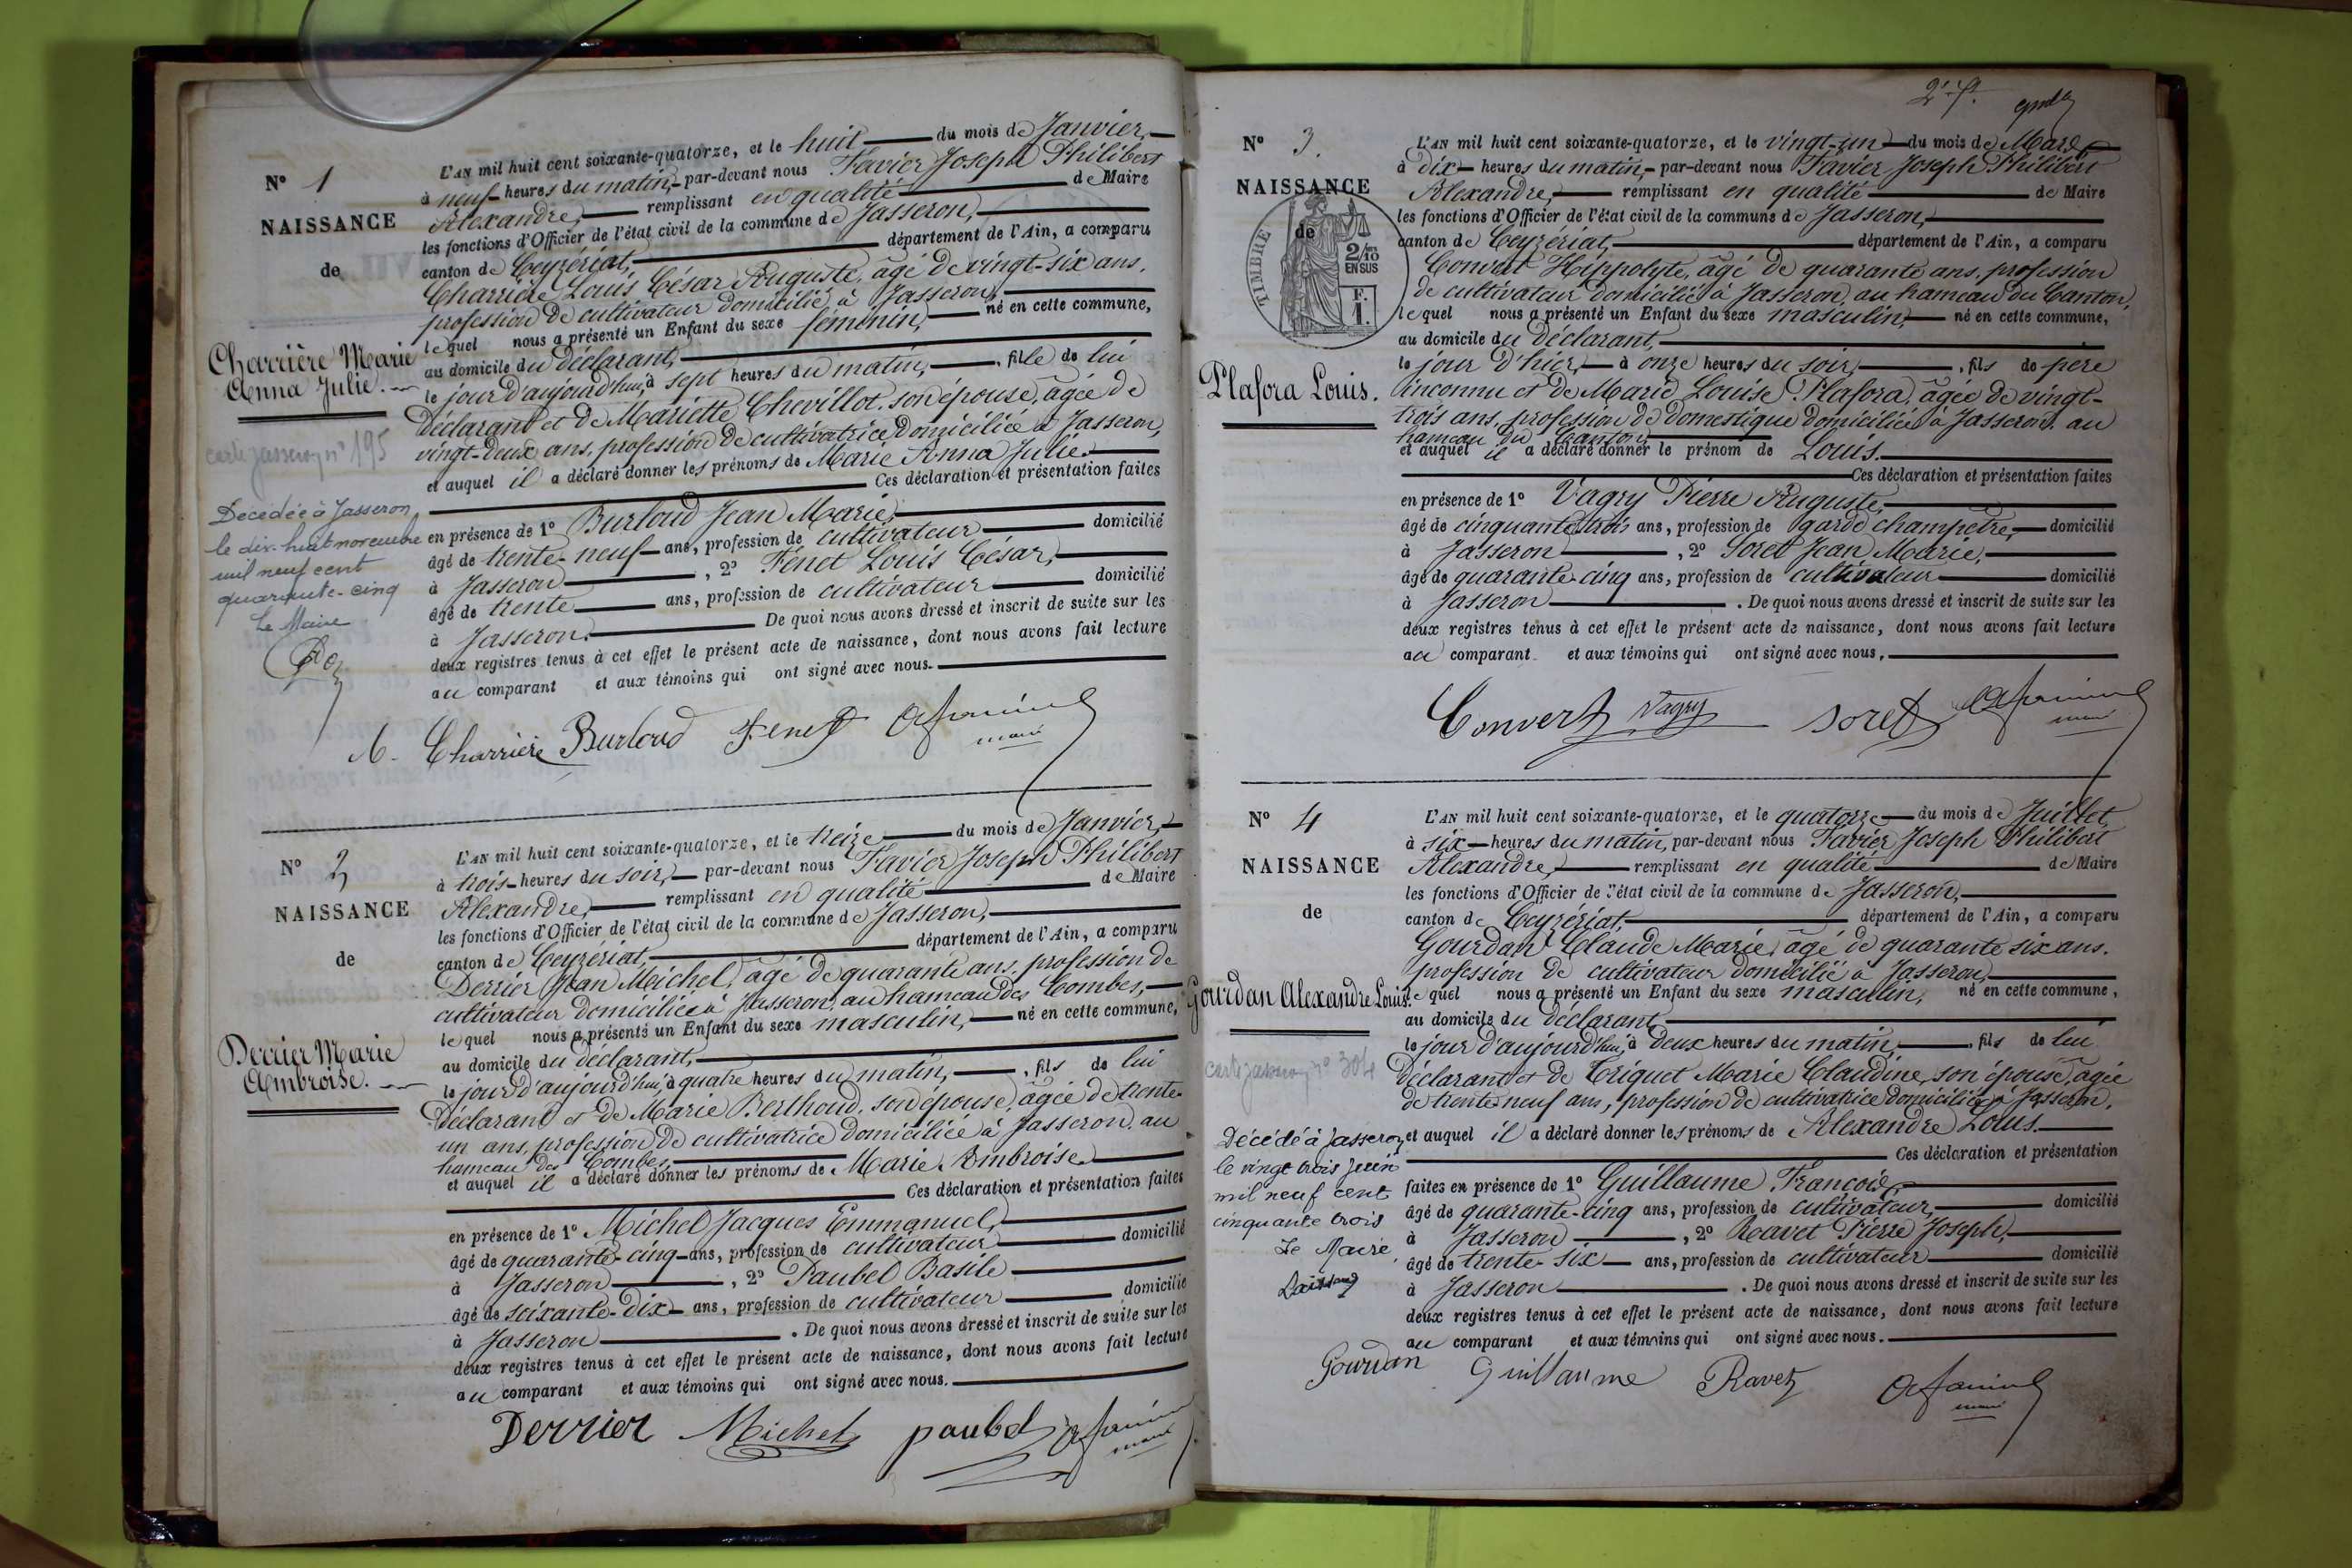 N° 1
NAISSANCE
de
Charrière Marie
Anna Julie.
carte jasseron n° 195
Décédée à Jasseron
le dix-huit novembre
mil neuf cent
quarante-cinq
Le Maire
L'AN mil huit cent soixante-quatorze, et le huit du mois de Janvier,
à neuf heures du matin, par-devant nous Favier Joseph Philibert
Alexandre, remplissant en qualité de Maire
les fonctions d'Officier de l'état civil de la commune de Jasseron,
canton de Ceyzériat, département de l'Ain, a comparu
Charrière Louis César Auguste, âgé de vingt-six ans,
profession de cultivateur domicilié à Jasseron,
lequel nous a présenté un Enfant du sexe féminin, né en cette commune,
au domicile du déclarant,
le jour d'aujourd'hui, à sept heures du matin, fille de lui
déclarant et de Mariette Chevillot, son épouse, âgée de
vingt-deux ans, profession de cultivatrice domiciliée à Jasseron,
et auquel il a déclaré donner les prénoms de Marie Anna Julie.
Ces déclaration et présentation faites
en présence de 1° Burloud Jean Marie,
âgé de trente-neuf ans, profession de cultivateur domicilié
à Jasseron, 2° Fenet Louis César,
âgé de trente ans, profession de cultivateur domicilié
à Jasseron. De quoi nous avons dressé et inscrit de suite sur les
deux registres tenus à cet effet le présent acte de naissance, dont nous avons fait lecture
au comparant et aux témoins qui ont signé avec nous.
Charrière Burloud Fenet
maire
N° 2
NAISSANCE
de
Derrier Marie
Ambroise.
L'AN mil huit cent soixante-quatorze, et le treize du mois de Janvier,
à trois heures du soir, par-devant nous Favier Joseph Philibert
Alexandre, remplissant en qualité de Maire
les fonctions d'Officier de l'état civil de la commune de Jasseron,
canton de Ceyzériat, département de l'Ain, a comparu
Derrier Jean Michel, âgé de quarante ans, profession de
cultivateur domicilié à Jasseron, au hameau des Combes,
lequel nous a présenté un Enfant du sexe masculin, né en cette commune,
au domicile du déclarant,
le jour d'aujourd'hui, à quatre heures du matin, fils de lui
déclarant et de Marie Berthoud, son épouse, âgée de trente-
un ans, profession de cultivatrice domiciliée à Jasseron, au
hameau des Combes,
et auquel il a déclaré donner les prénoms de Marie Ambroise.
Ces déclaration et présentation faites
en présence de 1° Michel Jacques Emmanuel,
âgé de quarante-cinq ans, profession de cultivateur domicilié
à Jasseron, 2° Paubel Basile
âgé de soixante-dix ans, profession de cultivateur domicilié
à Jasseron. De quoi nous avons dressé et inscrit de suite sur les
deux registres tenus à cet effet le présent acte de naissance, dont nous avons fait lecture
au comparant et aux témoins qui ont signé avec nous.
Derrier Michel paubel
maire
2e f.
N° 3.
NAISSANCE
de
TIMBRE
2/10
EN SUS
F.
1.
Plafora Louis.
L'AN mil huit cent soixante-quatorze, et le vingt-un du mois de Mars
à dix heures du matin, par-devant nous Favier Joseph Philibert
Alexandre, remplissant en qualité de Maire
les fonctions d'Officier de l'état civil de la commune de Jasseron,
canton de Ceyzériat, département de l'Ain, a comparu
Convert Hippolyte, âgé de quarante ans, profession
de cultivateur domicilié à Jasseron, au hameau du Canton,
lequel nous a présenté un Enfant du sexe masculin, né en cette commune,
au domicile du déclarant,
le jour d'hier, à onze heures du soir, fils de père
inconnu et de Marie Louise Plafora, âgée de vingt-
trois ans, profession de domestique domiciliée à Jasseron, au
hameau du Canton,
et auquel il a déclaré donner le prénom de Louis.
Ces déclaration et présentation faites
en présence de 1° Vagry Pierre Auguste,
âgé de cinquante-trois ans, profession de garde champêtre, domicilié
à Jasseron, 2° Soret Jean Marie,
âgé de quarante-cinq ans, profession de cultivateur domicilié
à Jasseron. De quoi nous avons dressé et inscrit de suite sur les
deux registres tenus à cet effet le présent acte de naissance, dont nous avons fait lecture
au comparant et aux témoins qui ont signé avec nous,
Convert Vagry Soret
maire
N° 4
NAISSANCE
de
Gourdan Alexandre Louis.
carte jasseron n° 304
Décédé à Jasseron
le vingt trois Juin
mil neuf cent
cinquante trois
Le Maire
L'AN mil huit cent soixante-quatorze, et le quatorze du mois de Juillet,
à six heures du matin, par-devant nous Favier Joseph Philibert
Alexandre, remplissant en qualité de Maire
les fonctions d'Officier de l'état civil de la commune de Jasseron,
canton de Ceyzériat, département de l'Ain, a comparu
Gourdan Claude Marie, âgé de quarante six ans,
profession de cultivateur domicilié à Jasseron,
lequel nous a présenté un Enfant du sexe masculin, né en cette commune,
au domicile du déclarant,
le jour d'aujourd'hui, à deux heures du matin, fils de lui
déclarant et de Triquet Marie Claudine, son épouse, âgée
de trente-neuf ans, profession de cultivatrice domiciliée à Jasseron,
et auquel il a déclaré donner les prénoms de Alexandre Louis.
Ces déclaration et présentation
faites en présence de 1° Guillaume François,
âgé de quarante-cinq ans, profession de cultivateur, domicilié
à Jasseron, 2° Ravet Pierre Joseph,
âgé de trente-six ans, profession de cultivateur domicilié
à Jasseron. De quoi nous avons dressé et inscrit de suite sur les
deux registres tenus à cet effet le présent acte de naissance, dont nous avons fait lecture
au comparant et aux témoins qui ont signé avec nous.
Gourdan Guillaume Ravet
maire